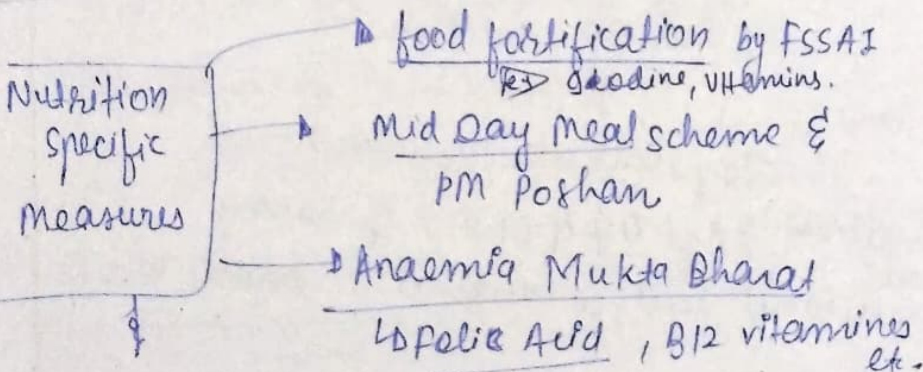 Nutrition
Specific
Measures
food fortification by FSSAI
Iodine, Vitamins.
Mid Day Meal scheme &
PM Poshan
Anaemia Mukta Bharat
↳ Folic Acid, B12 vitamines
etc.